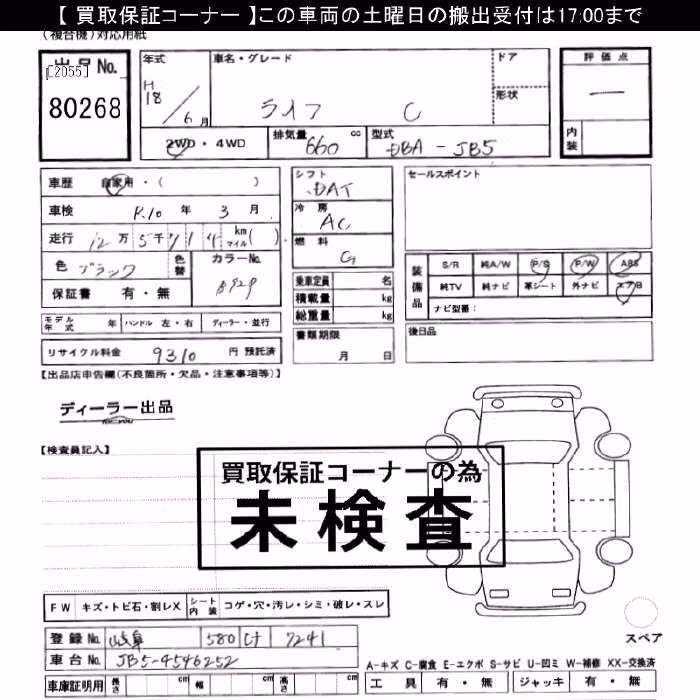 【 買取保証コーナー 】この車両の土曜日の搬出受付は17:00まで
(複合機)対応用紙
出品No. [2055] 80268
年式 H18/6月
車名・グレード ライフ C
ドア
形状
評価点 —
内装
2WD・4WD
排気量 660 cc
型式 DBA-JB5
車歴 自家用・( )
車検 R.10年 3月
走行 12万5千 km マイル ( )
色 ブラック 色替
カラーNo. B92P
保証書 有・無
シフト DAT
冷房 AC
燃料 G
乗車定員 名
積載量 kg
総重量 kg
セールスポイント
装備品 S/R 純A/W P/S P/W ABS
純TV 純ナビ 革シート 外ナビ エアB
ナビ型番:
モデル年式 年 ハンドル 左・右 ディーラー・並行
書類期限 月 日
後日品
リサイクル料金 9310 円 預託済
【出品店申告欄(不良箇所・欠品・注意事項等)】
ディーラー出品
【検査員記入】
買取保証コーナーの為
未検査
FW キズ・トビ石・割レX シート内装 コゲ・穴・汚レ・シミ・破レ・スレ
登録No. 岐阜 580 け 7241
車台No. JB5-4546252
車庫証明用 長さ cm 幅 cm 高さ cm
スペア
A-キズ C-腐食 E-エクボ S-サビ U-凹ミ W-補修 XX-交換済
工具 有・無 ジャッキ 有・無